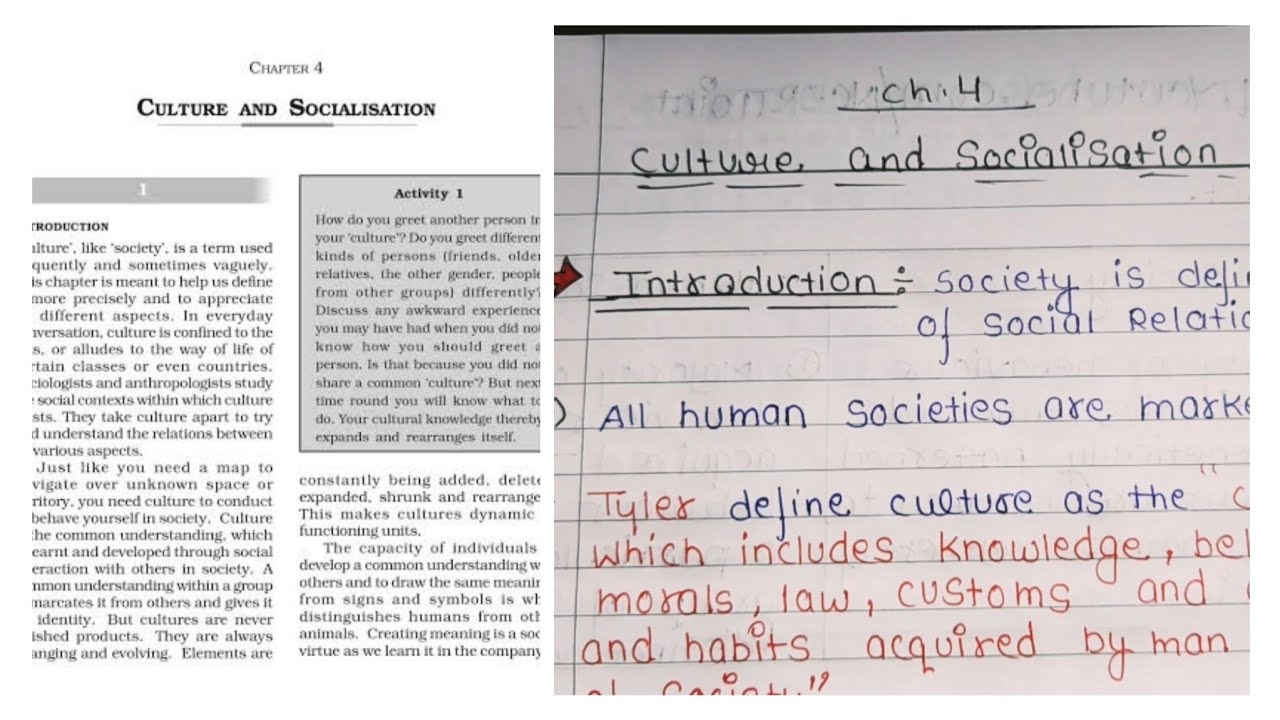 CHAPTER 4
CULTURE AND SOCIALISATION
I
TRODUCTION
ulture', like 'society', is a term used
quently and sometimes vaguely.
is chapter is meant to help us define
more precisely and to appreciate
different aspects. In everyday
nversation, culture is confined to the
s, or alludes to the way of life of
rtain classes or even countries.
ciologists and anthropologists study
social contexts within which culture
sts. They take culture apart to try
d understand the relations between
various aspects.
Just like you need a map to
vigate over unknown space or
ritory, you need culture to conduct
behave yourself in society. Culture
he common understanding, which
earnt and developed through social
eraction with others in society. A
mmon understanding within a group
marcates it from others and gives it
identity. But cultures are never
ished products. They are always
anging and evolving. Elements are
Activity 1
How do you greet another person in
your 'culture'? Do you greet different
kinds of persons (friends, older
relatives, the other gender, people
from other groups) differently?
Discuss any awkward experience
you may have had when you did not
know how you should greet a
person. Is that because you did not
share a common 'culture'? But next
time round you will know what to
do. Your cultural knowledge thereby
expands and rearranges itself.
constantly being added, delete
expanded, shrunk and rearrange
This makes cultures dynamic
functioning units.
The capacity of individuals
develop a common understanding w
others and to draw the same meanin
from signs and symbols is wh
distinguishes humans from oth
animals. Creating meaning is a soc
virtue as we learn it in the company
ch.4
Culture and Socialisation
Introduction :- Society is defi
of Social Relatio
) All human Societies are marke
Tyler define culture as the "c
which includes knowledge, bel
morals, law, customs and
and habits acquired by man
of Society"